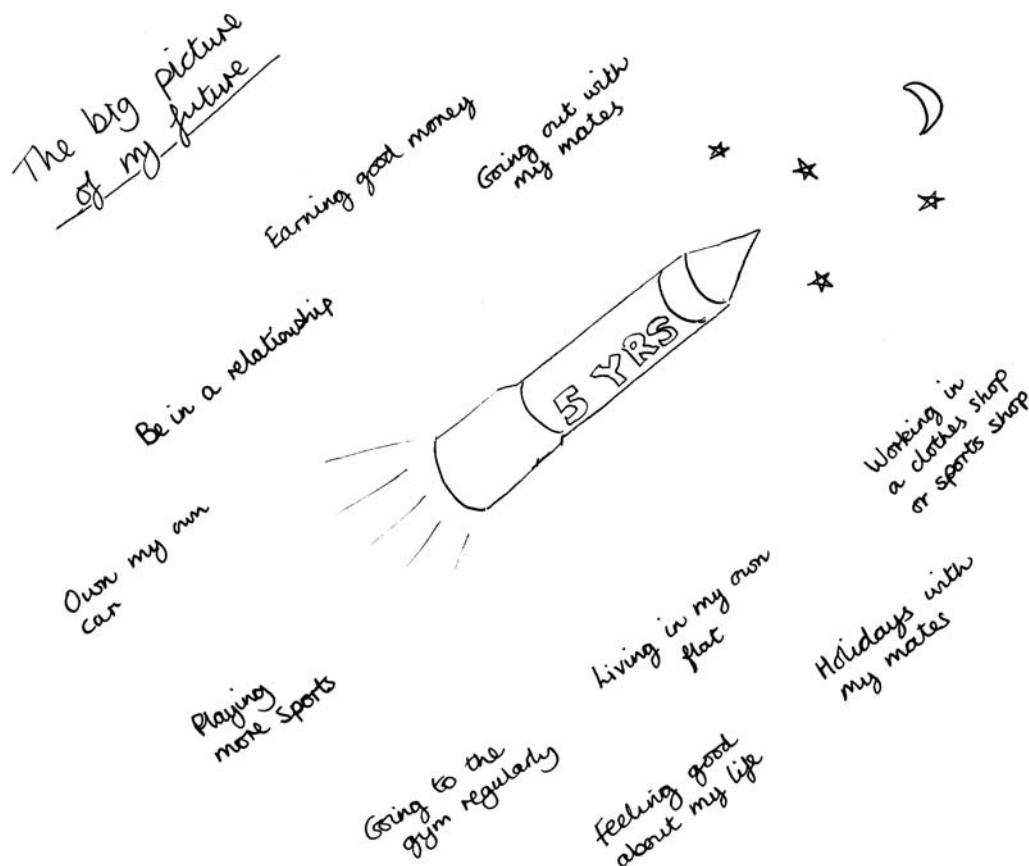 The big picture
of my future
Earning good money
Going out with
my mates
Be in a relationship
5 YRS
Working in
a clothes shop
or sports shop
Own my own
car
Living in my own
flat
Holidays with
my mates
Playing
more sports
Going to the
gym regularly
Feeling good
about my life